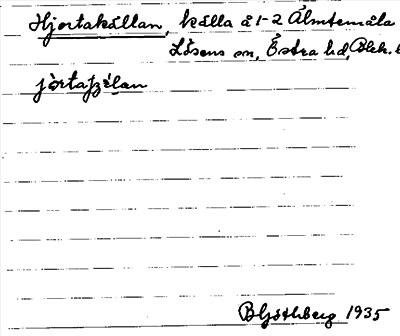 Hjortakällan, källa å 1-2 Älmtemåla
Lösens sn, Östra hd, Blek. l
jo̊rtaꞩä́lan
B Ljothberg 1935